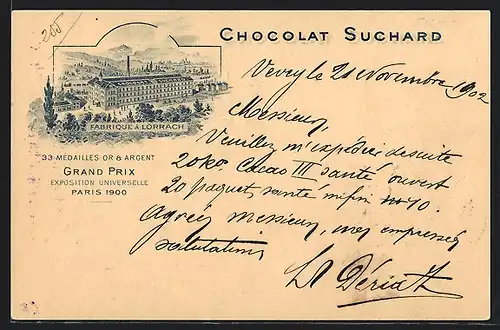 200
CHOCOLAT SUCHARD
FABRIQUE À LÖRRACH
33 MÉDAILLES OR & ARGENT
GRAND PRIX
EXPOSITION UNIVERSELLE
PARIS 1900
Vevey le 21 Novembre 1902
Messieurs,
Veuillez m'expédier de suite
20 ko. Cacao III santé ouvert
20 paquets santé mifin no 10.
Agréez messieurs, mes empressées
salutations